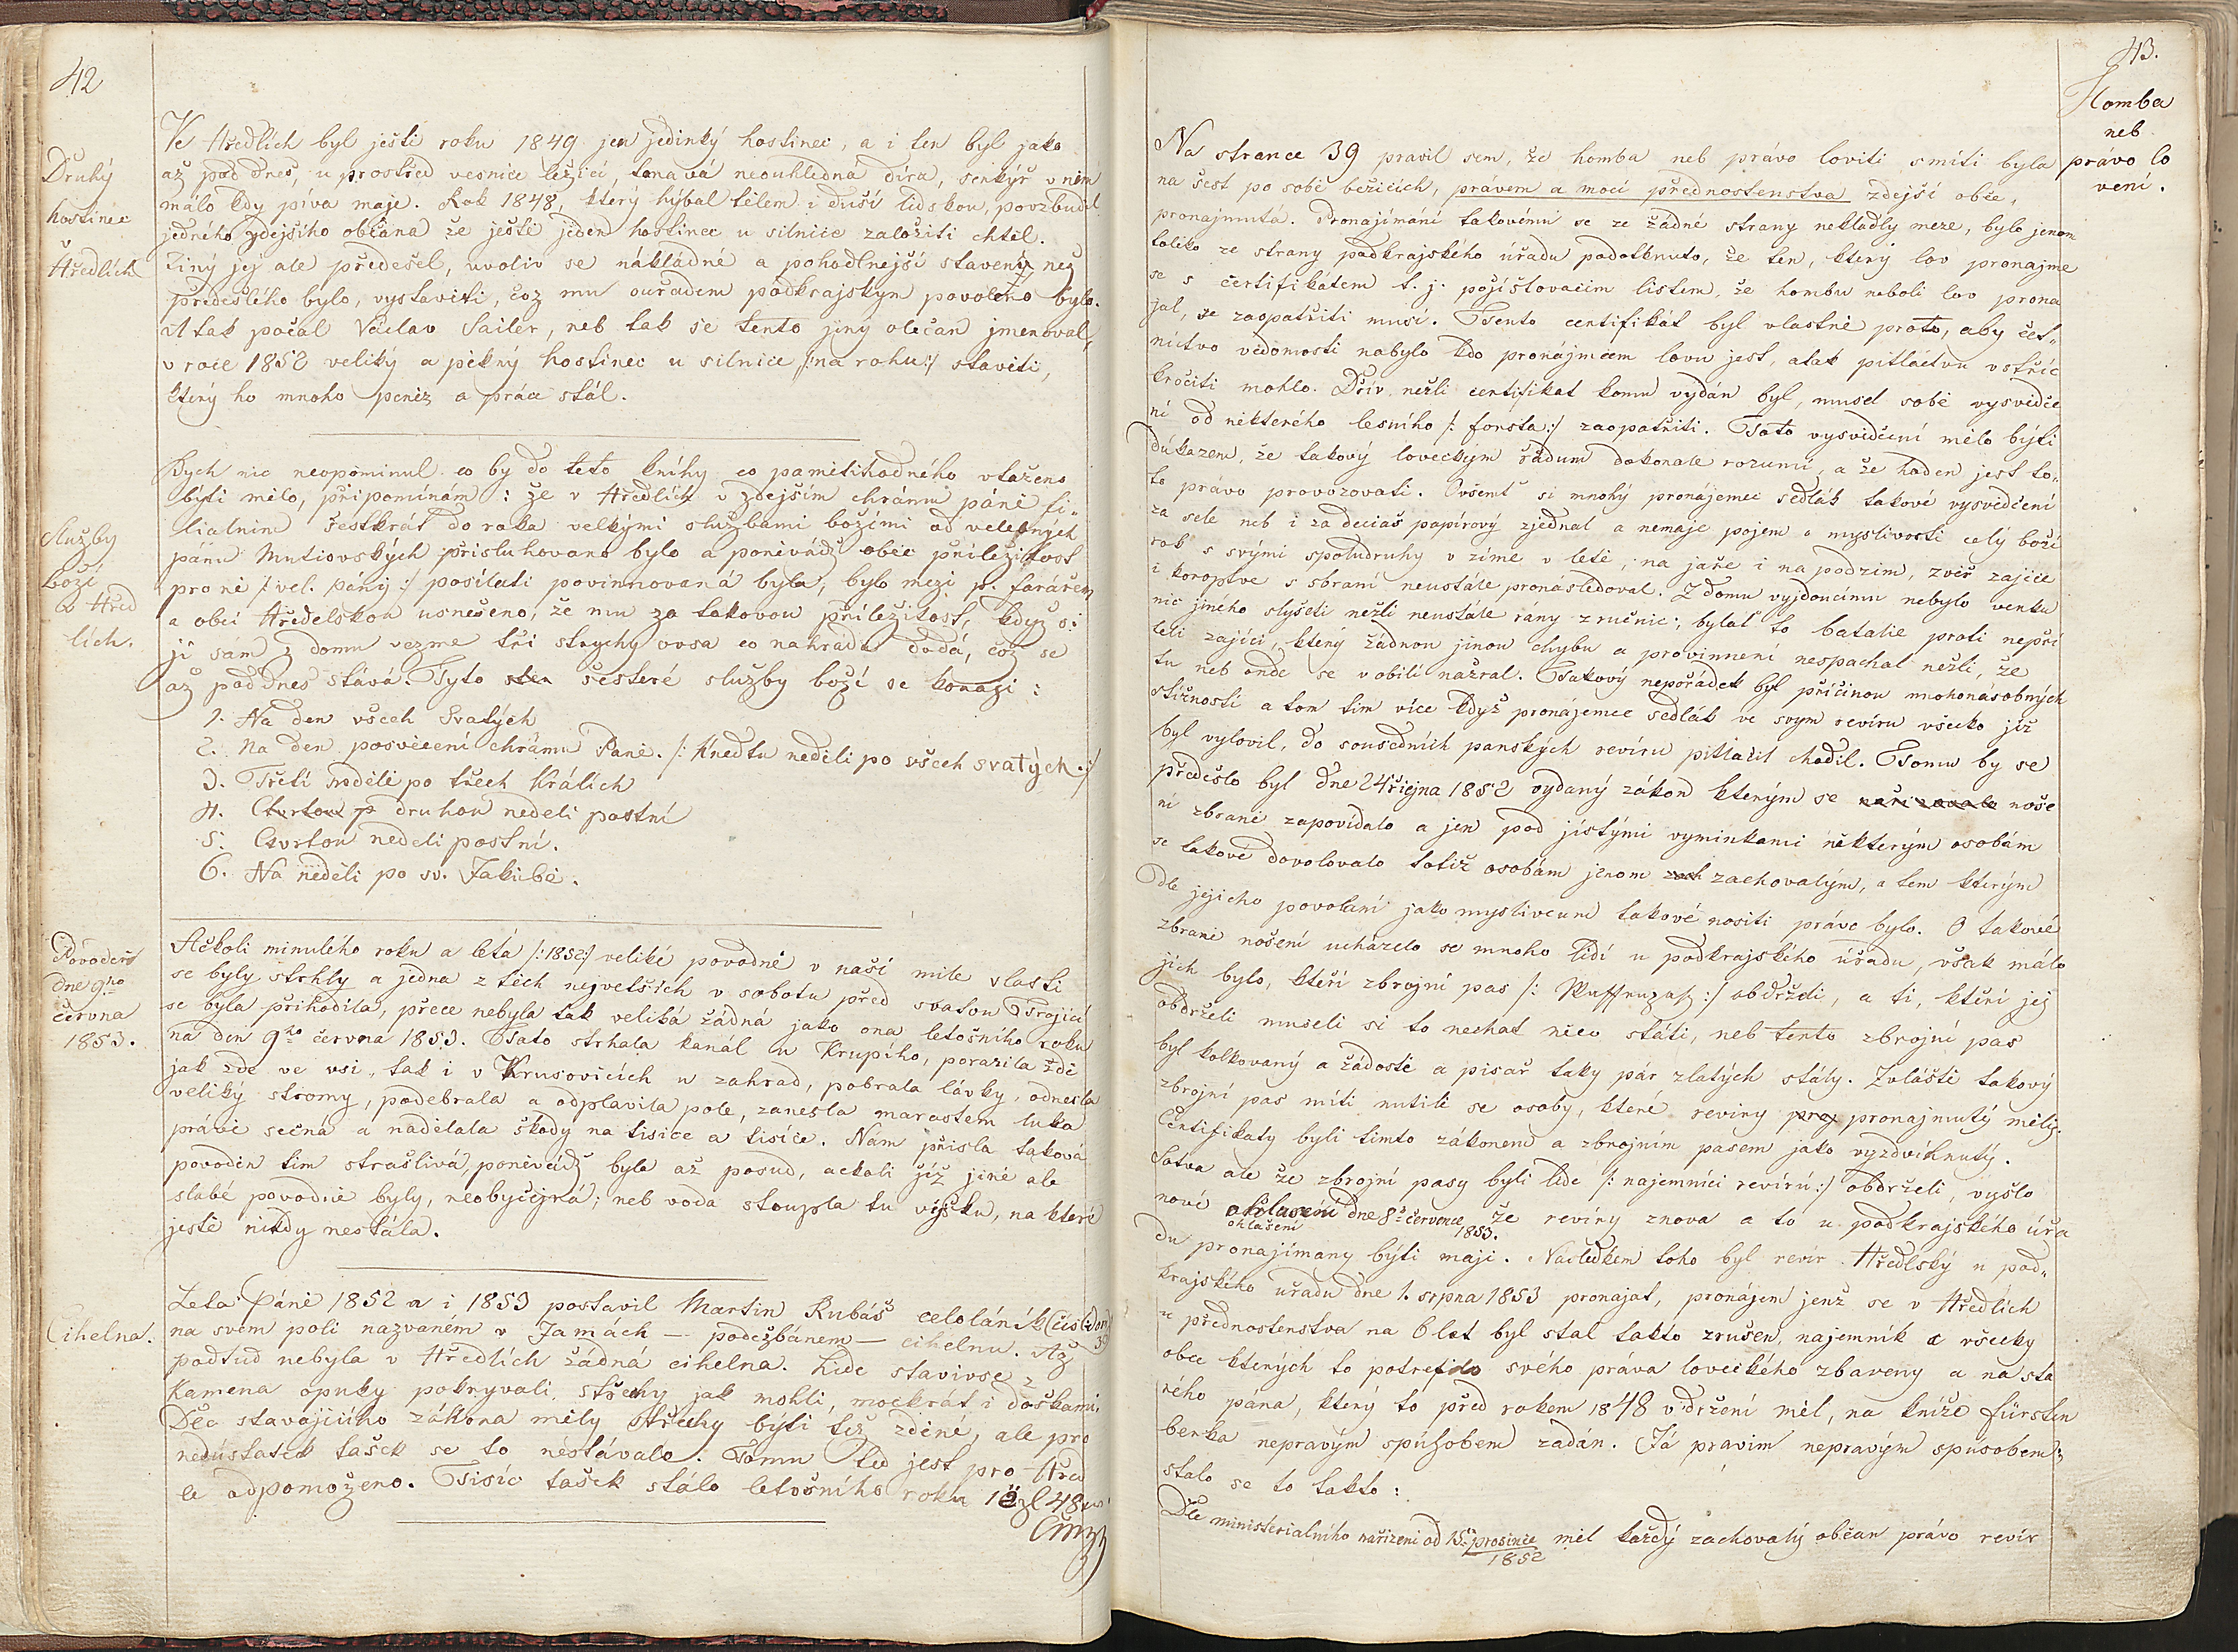 42
Druhý
hostinec
Hředlích
Ve Hředlích byl ještě roku 1849 jen jedinký hostinec, a i ten byl jako
až pod dnes, u prostřed vesnice ležící, tmavá neouhledná díra, senkýř v něm
málo kdy píva maje. Rok 1848, který hýbal tělem i duší lidskou, povzbudil
jedného zdejšího občana že ještě jeden hostinec u silnice založiti chtěl.
Jiný jej ale předešel, uvoliv se nákladné a pohodlnejší stavení, než
předešlého bylo, vystaviti, což mu ouřadem podkrajským povoleno bylo.
A tak počal Václav Sailer, neb tak se tento jiný občan jmenoval,
v roce 1852 veliký a pěkný hostinec u silnice /: na rohu :/ staviti,
který ho mnoho peněz a práce stál.
Služby
Boží
v Hřed
lích.
Bych nic neopominul co by do teto knihy co pamětihodného vtaženo
býti mělo, připomínám: že v Hředlích v zdejším chrámu páně fi„
lialním šestkrát do roka velkými službami božími od velebných
pánu Mutiovských přisluhováno bylo a poněvádž obec příležitost
pro ně /: vel. pány :/ posílati povinnovaná byla, bylo mezi p. farářem
a obcí Hředelskou usnešeno, že mu za takovou příležitost, když si
ji sám z domu vezme tři strychy ovsa co nahrádu dodá, což se
až pod dnes stává. Tyto sten šesteré služby boží se konagi:
1. Na den všech Svatých
2. Na den posvěcení chrámu Páně. /: Hnedtu neděli po všech svatých :/
3. Třetí neděli po třech Králích
4. Ctvrtou p druhou neděli postní
5. Ctvrtou neděli postní.
6. Na neděli po sv. Jakubě.
Povodeň
dne 9ho
června
1853.
Ačkoli minulého roku a léta /: 1852 :/ veliké povodně v naší míle vlasti
se byly strhly a jedna z těch největších v sobotu před svatou Trojicí
se byla přihodila, přece nebyla tak veliká žádná jako ona letošního roku
na den 9ho června 1853. Tato strhala kanál u Krupího, porazila zdě
jak zde ve vsi, tak i v Krusovicích u zahrad, pobrala lávky, odnesla
veliký stromy, podebrala a odplavila pole, zanesla marastem luka
právě sečná a nadělala škody na tisíce a tisíce. Nám přišla taková
povodeň tim strašlivá, poněvádž byla až posud, ačkoli již jiné ale
slabé povodně byly, neobyčejná; neb voda stoupla tu výšku, na které
jestě nikdy nestála.
Cihelna.
Leta Páně 1852 a i 1853 postavil Martin Rubáš celoláník (číslo dom
39
na svém poli nazvaném v Jamách — podežbánem — cihelnu. Až
podtud nebyla v Hředlích žádná cihelna. Lide stavivse z
Kamena opuky pokryvali střechy jak mohli, mockrát i doškami.
Dle stavajiciho zákona měly střechy býti též zděné, ale pro
nedostatek tašek se to nestávalo. Tomu teď jest pro Hřed
le odpomoženo. Tisíc tašek stálo letošního roku 1 zl 48
43.
Homba
neb
právo lo
vení.
Na strance 39 pravil sem, že homba neb právo loviti smíti byla
na šest po sobě bežících, právem a mocí přednostenstva zdejší obce,
pronajmutá. Pronajímání takovému se ze žádné strany nekladly meze, bylo jenom
toliko ze strany podkrajského úřadu podotknuto, že ten, který lov pronajme
se s čertifikátem t. j. pojišťovacím listem, že hombu neboli lov prona
jal, se zaopatřiti musí. Tento certifikát byl vlastně proto, aby čet„
nictvo vědomosti nabylo kdo pronájmcem lovu jest, a tak pitláctvu vstříc
kročiti mohlo. Dřív nežli certifikat komu vydán byl, musel sobě vysvědče
ní od některého lesního /: forsta :/ zaopatřiti. Toto vysvědčení mělo býti
důkazem, že takový loveckým řádum dokonale rozumí, a že hoden jest to„
to právo provozovati. Ovšemť si mnohý pronájemce sedlák takové vysvědčení
za sele neb i za deciaš papírový zjednal a nemaje pojem o myslivosti celý boží
rok s svými spoludruhy v zimě v letě, na jaře i na podzim, zvěř zajíce
i koroptve s sbraní neustále pronásledoval. Z domu vyjdoucímu nebylo venku
nic jiného slyšeti nežli neustále rány z ručnic; bylať to batalie proti nepří
teli zajíci, který žádnou jinou chybu a provinnení nespachal nežli, že
tu neb onde se v obilí nažral. Takový nepořádek byl příčinou mohonásobných
stížností a tom tim více když pronajemce sedlák ve svym revíru všecko již
byl vylovil, do sousedních panských revíru pitlačil chodil. Tomu by se
předešlo byl dne 24 října 1852 vydaný zákon kterým se nařizovalo noše
ní zbraně zapovídalo a jen pod jistými vyminkami některým osobám
se takové dovolovalo totiž osobám jenom zach zachovalým, a tem kterým
dle jejicho povolaní jako myslivcum takové nositi právo bylo. O takové
zbraně nošení ucházelo se mnoho lidí u podkrajského úřadu, však málo
jich bylo, kteří zbrojní pas /: Waffenpaß :/ obdrželi, a ti, kteří jej
obdrželi museli si to nechat něco státi, neb tento zbrojní pas
byl kolkovaný a žádostě a písař taky pár zlatých stály. Zvláště takový
zbrojní pas míti nutili se osoby, které reviry proj pronajmutý měly.
Certifikaty byli timto zákonem a zbrojním pasem jako vyzdvihnutý.
Sotva ale že zbrojní pasy byli lide /: najemníci revírů :/ obdrželi, vyšlo
nové ohlasení dne 8ho července že revíry znova a to u podkrajského úřa
ohlašení 1853.
du pronajímany býti maji. Následkem toho byl revír Hředlský u pod„
krajského úřadu dne 1. srpna 1853 pronajat, pronájem jenž se v Hředlích
u přednostenstva na 6 let byl stal takto zrušen, najemník a všecky
obce kterých to potrefilo svého práva loveckého zbaveny a na sta
rého pána, který to před rokem 1848 v držení měl, na kníže Fürsten
berka nepravým spůsobem zadán. Já pravim nepravým spůsobem;
stalo se to takto:
Dle ministerialního nařízení od 15. prosince mel každý zachovalý občan právo revír
1852